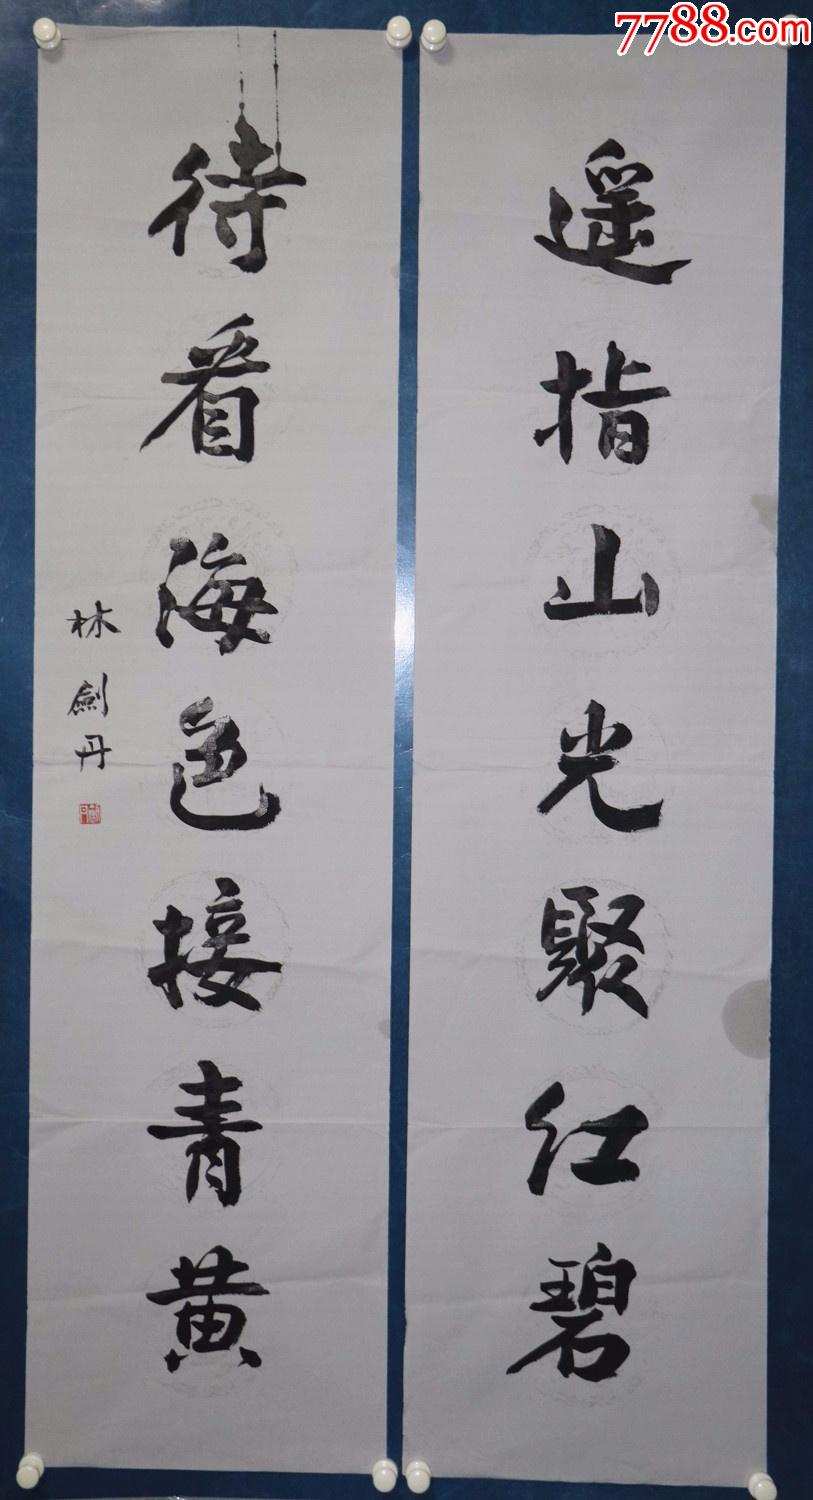 7788.com
遥指山光聚红碧
待看海色接青黄
林劍丹